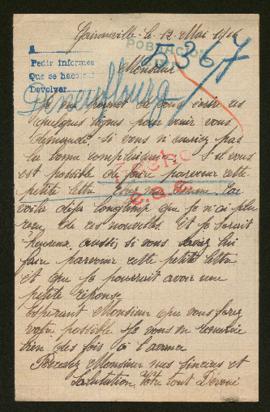 le 12 Mai 1916
POBLACION
5367
A
Pedir informes
Que se hacen
Devolver
Monsieur
Je me permet de vous écrire ces
quelques lignes pour venir vous
demander si vous n'auriez pas
la bonne complaisance S'il vous
est possible de faire parvenir cette
petite lettre
voila déja longtemp que je n'ai plu
reçu de ces nouvelles. Et je serait
heureux aussi si vous lui
faire parvenir cette petite lettre
et que je pourrait avoir une
petite réponse
esperant Monsieur que vous ferez
votre possible Je vous en remercie
bien des fois à l'avance
Recevez Monsieur mes sinceres et
Salutation Votre tout Dévoué